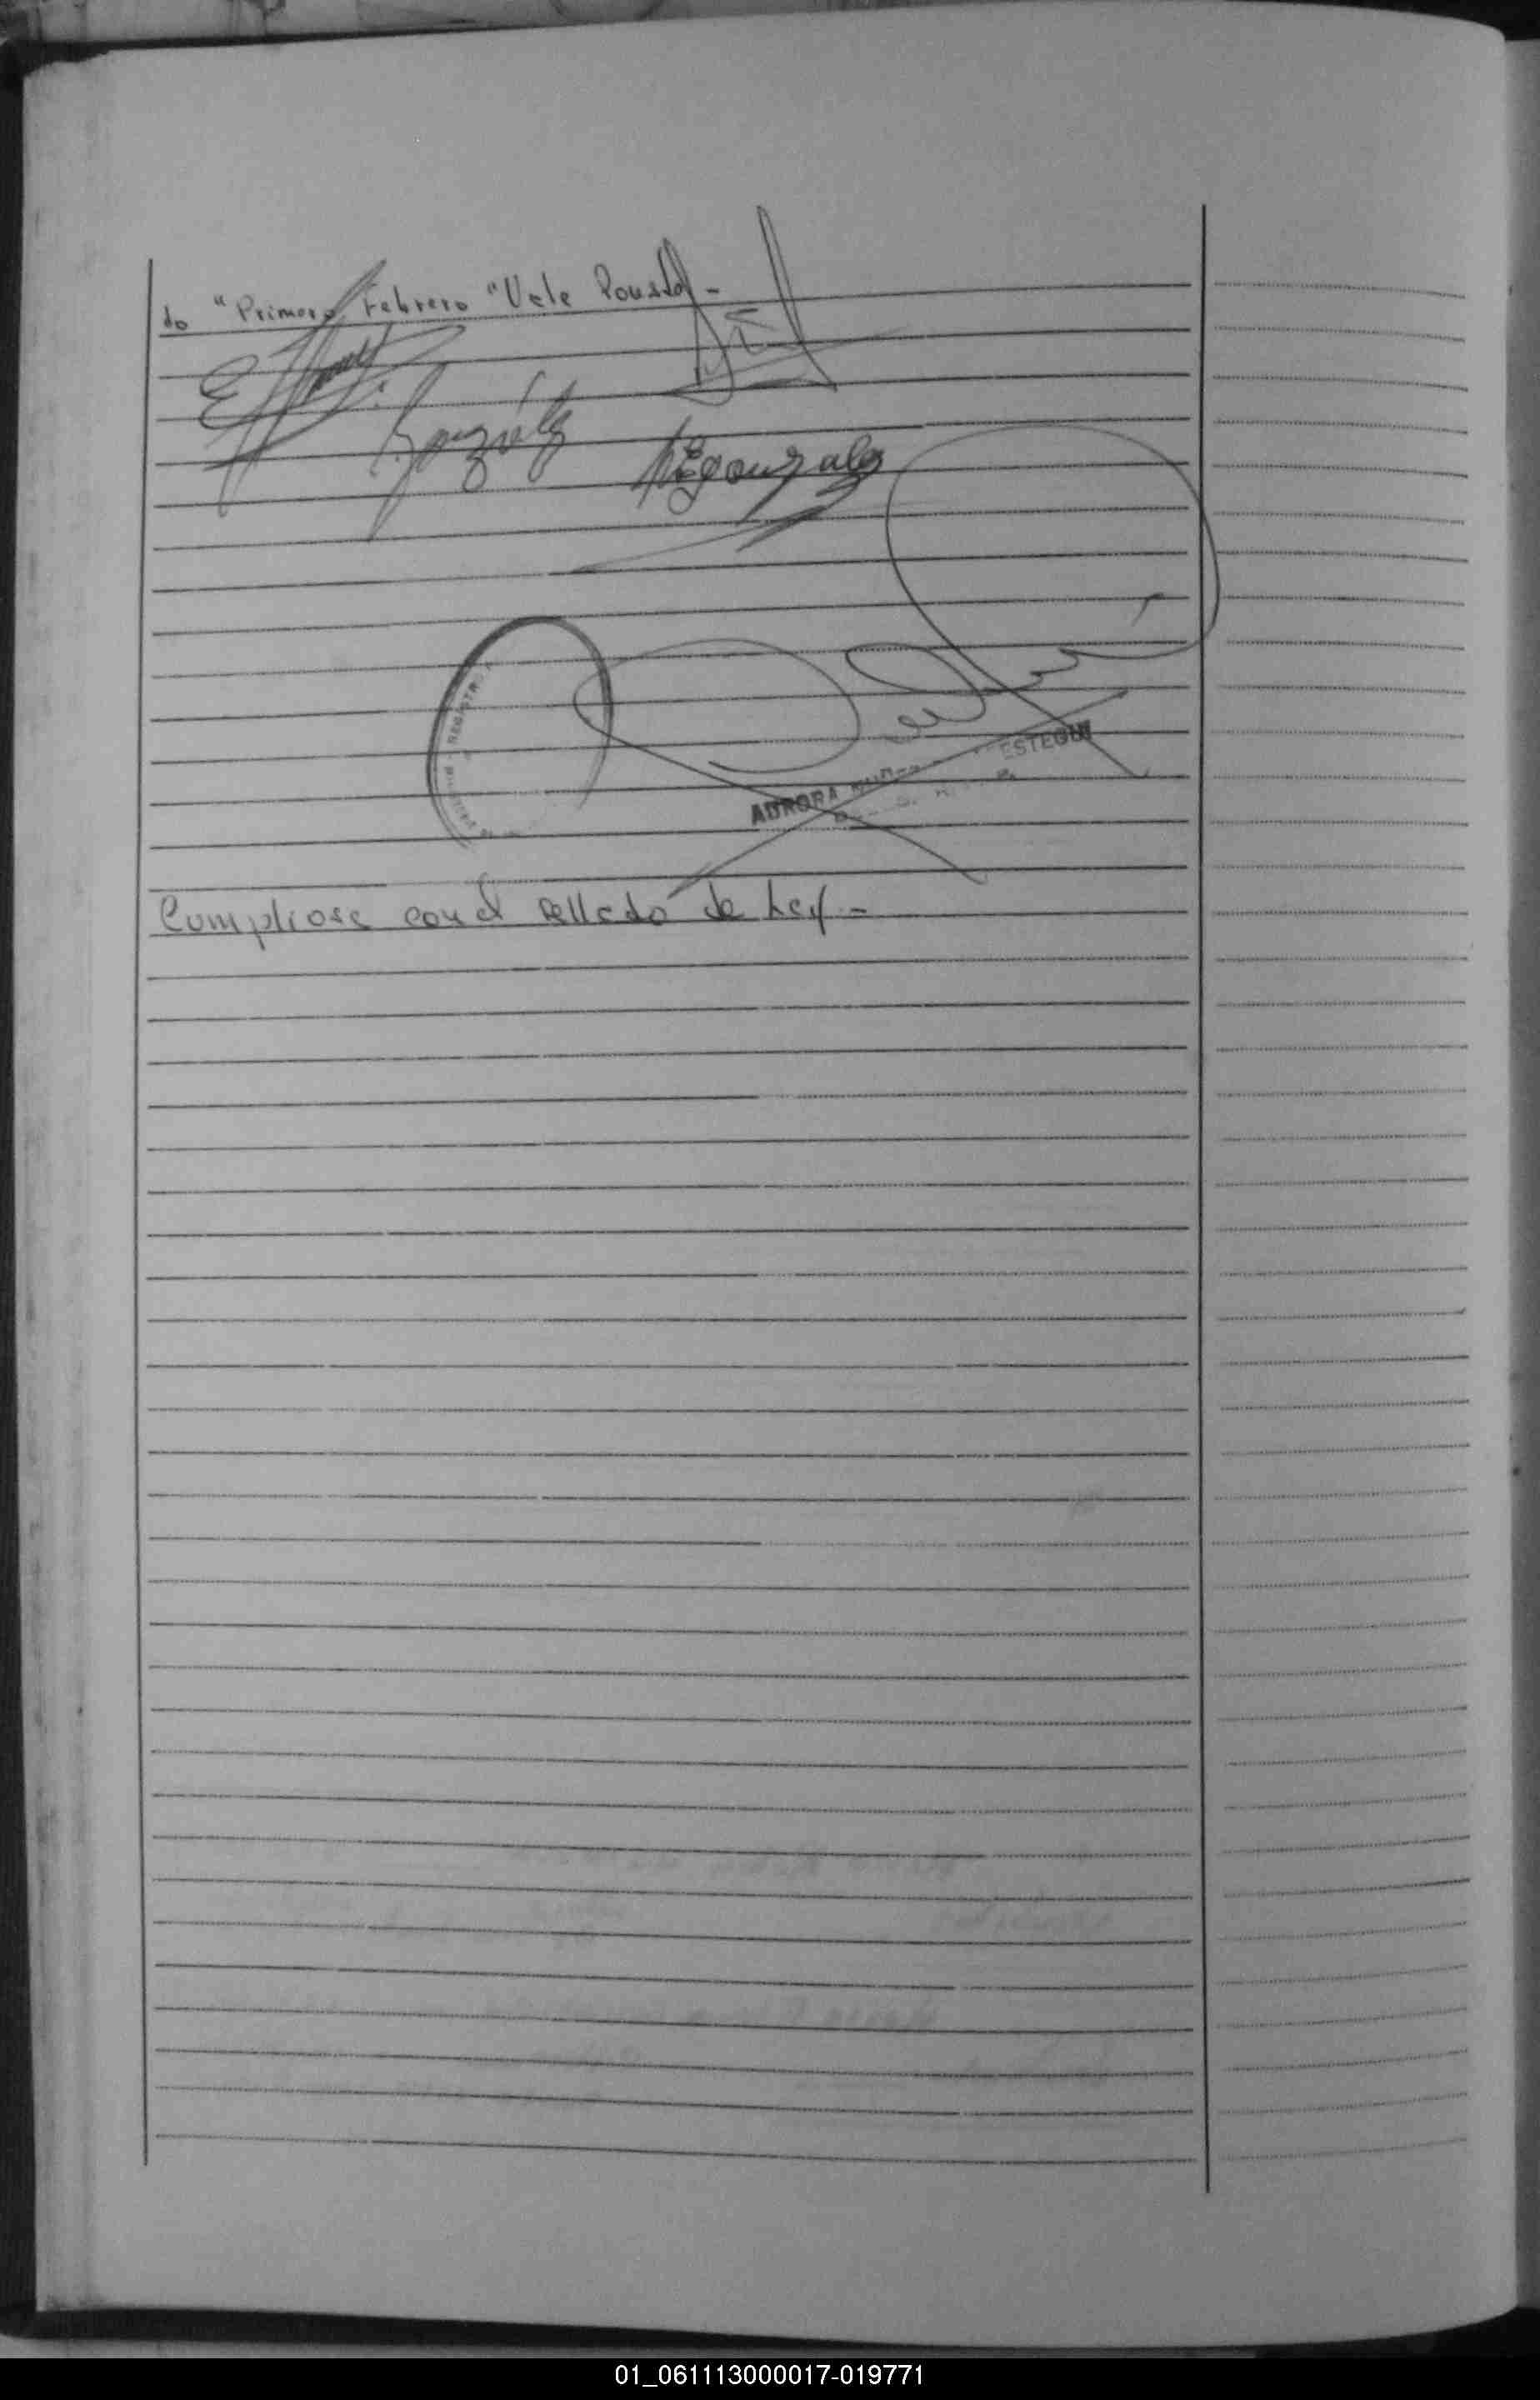 do "Primero Febrero "Vale Consta -
González
González
REGISTRO
AURORA ESTEGUI
Cumpliose con el sellado de Ley.-
01_061113000017-019771